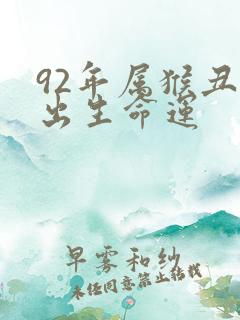 92年属猴丑
出生命运
早雾和纱
未经同意禁止转载